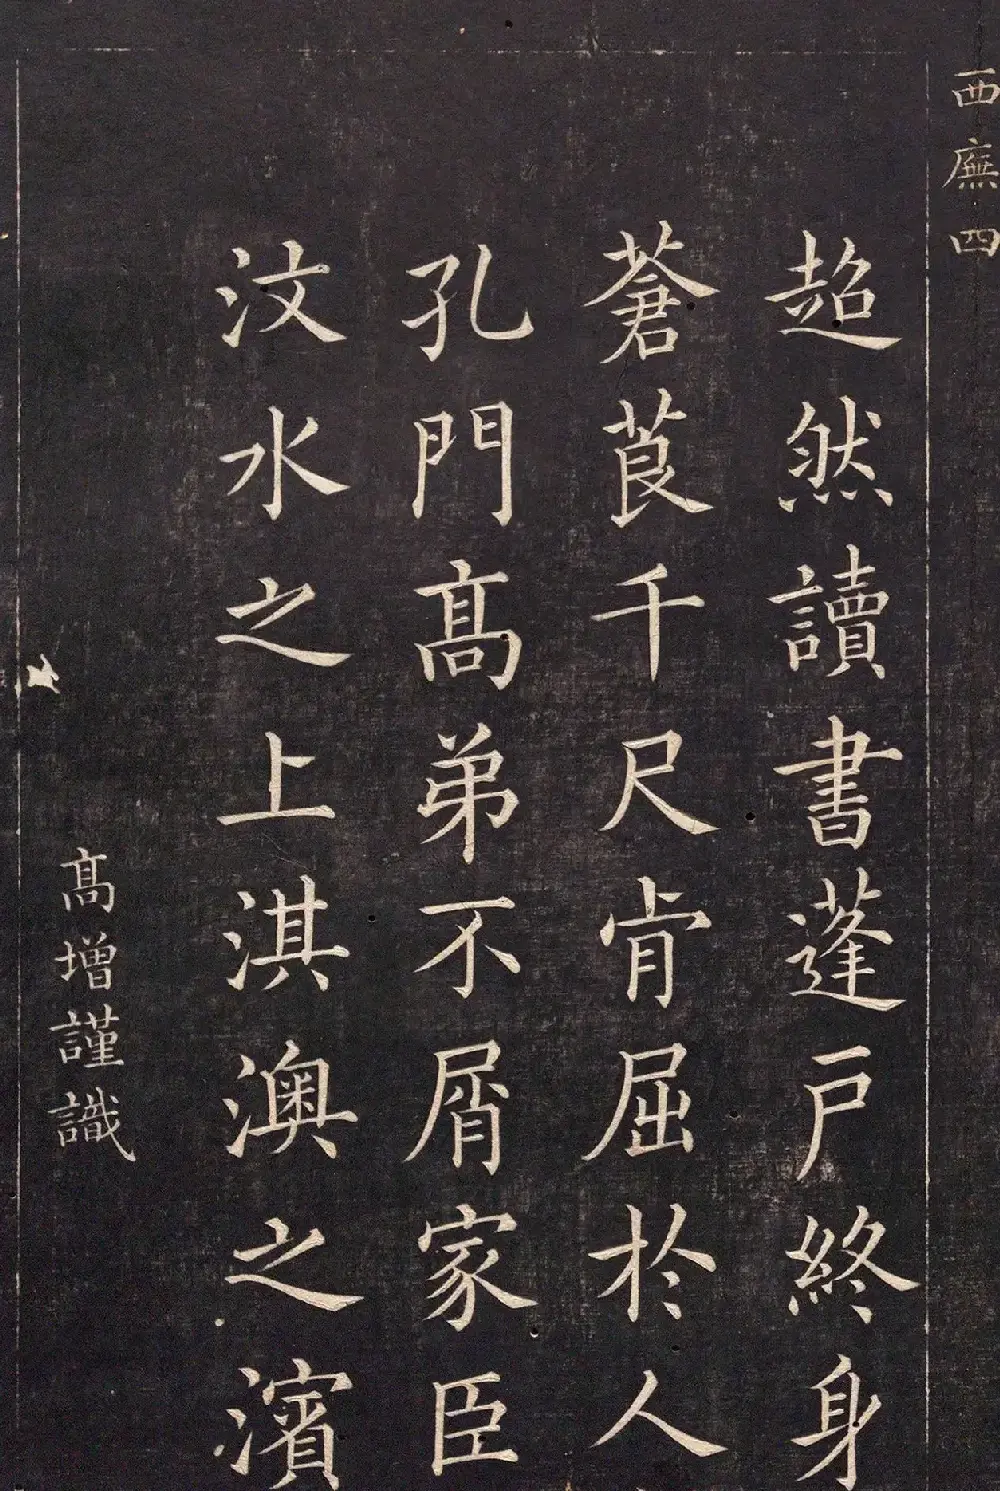 西廡四
超然讀書蓬戶終身
蒼莨千尺肯屈於人
孔門高弟不屑家臣
汶水之上淇澳之濱
高增謹識